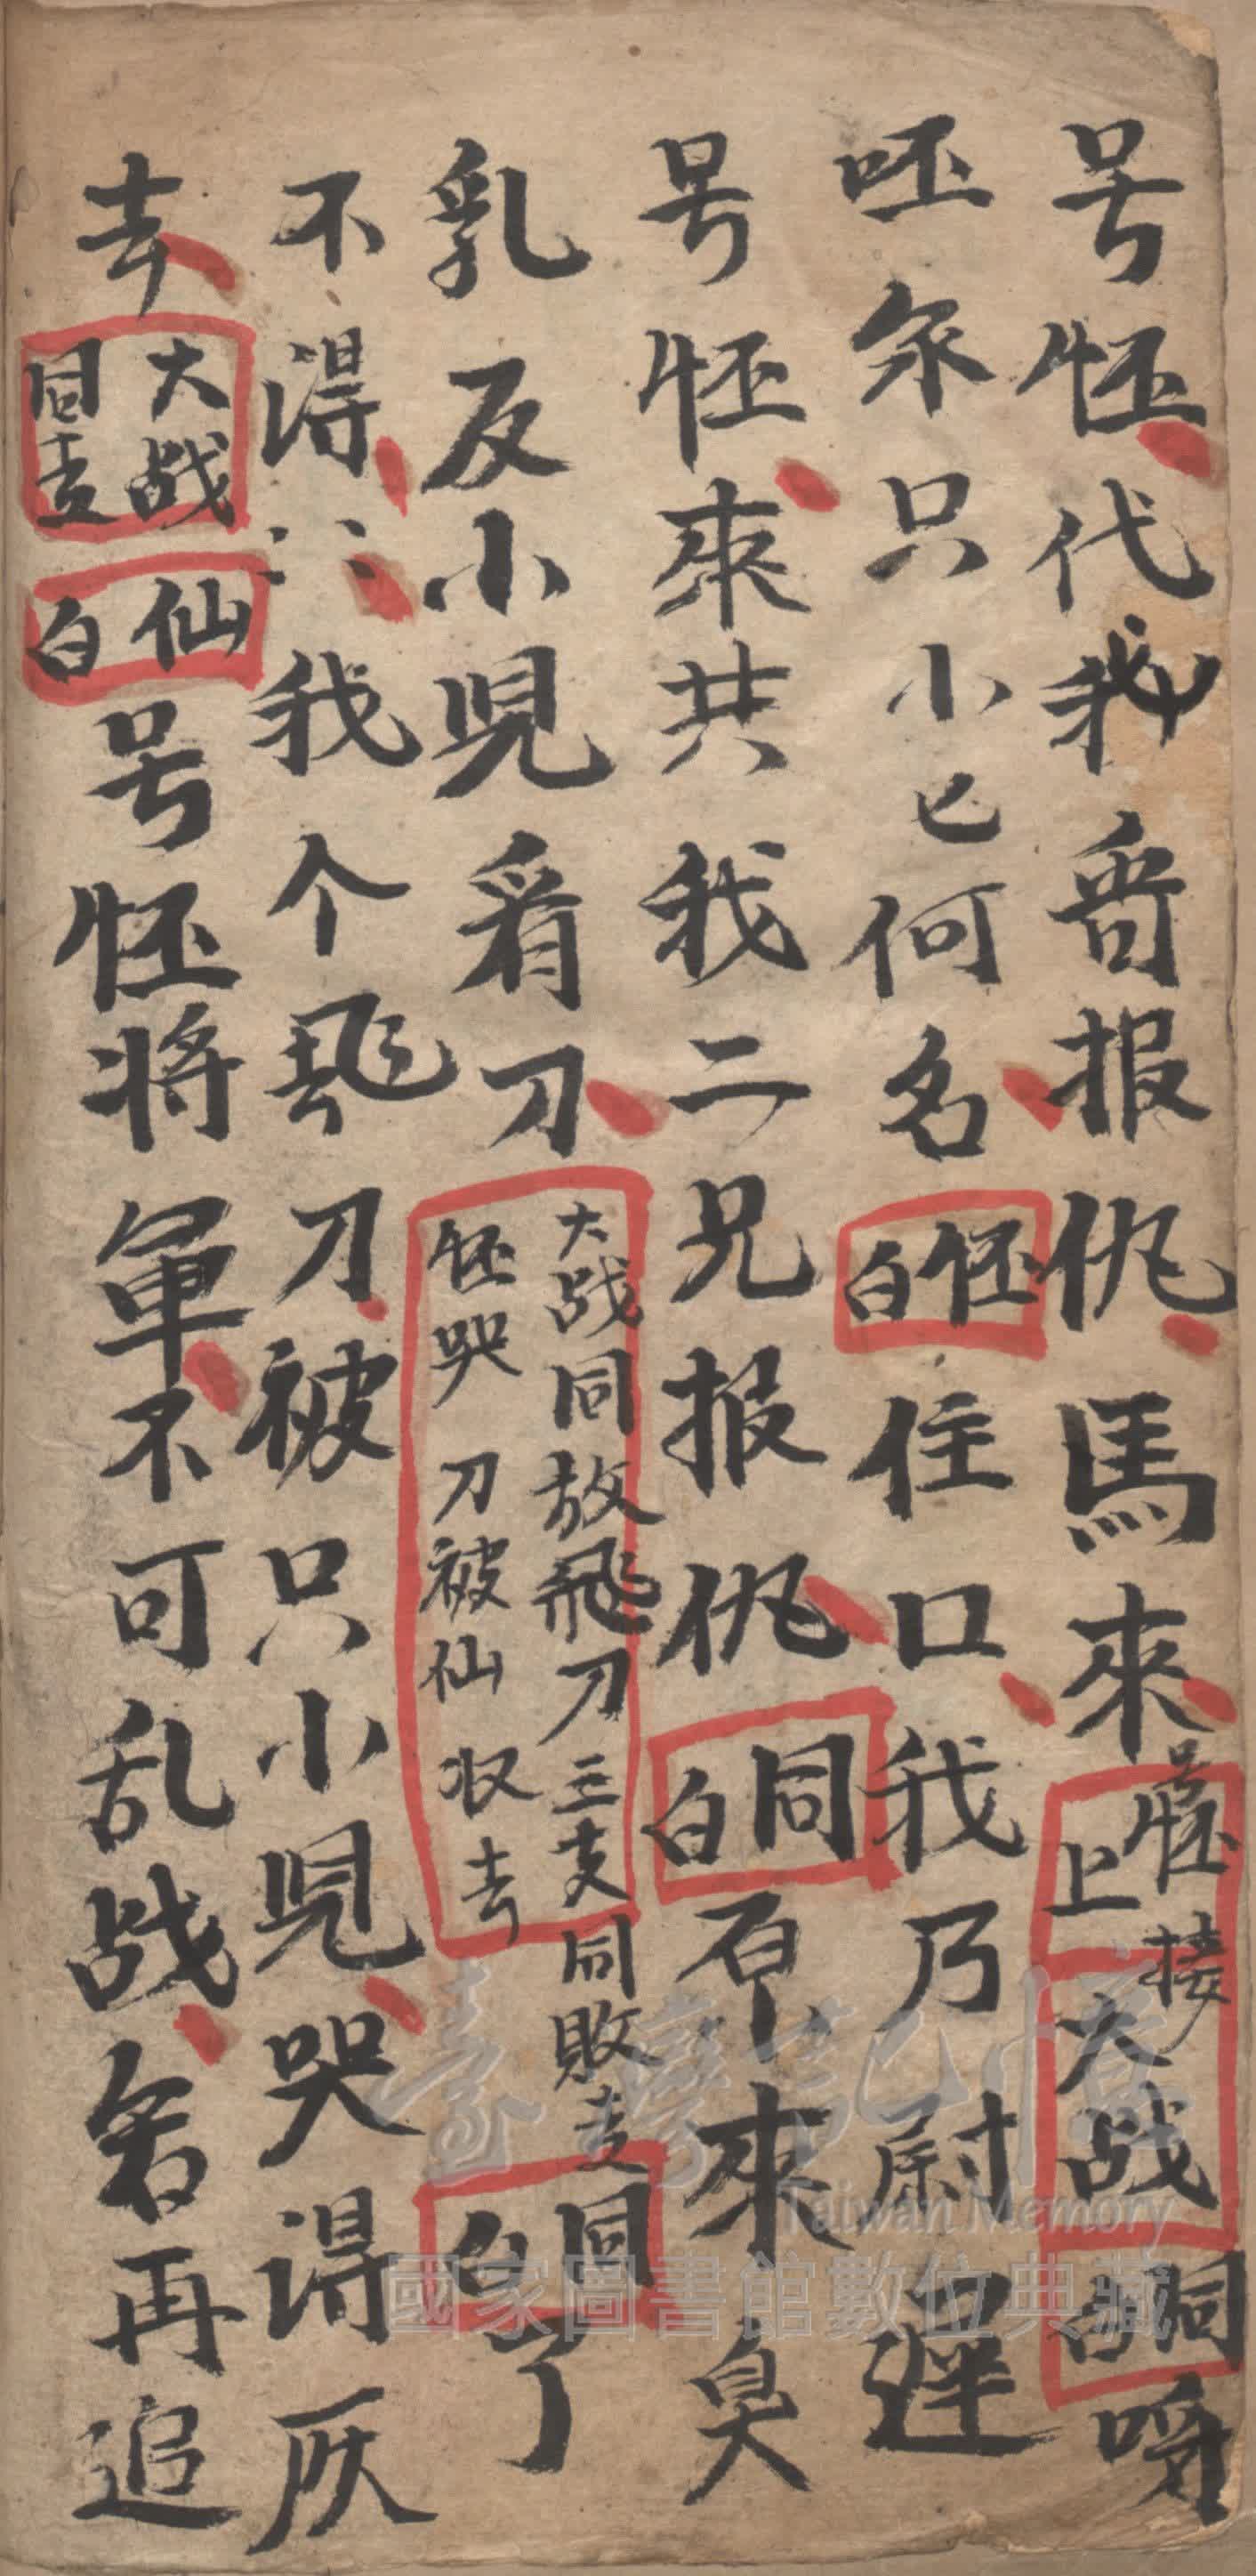 号怪代我番报仇馬來 号怪接上 大战 同白 呀
呸尔只小乜何名 怪白 住口我乃尉迟
号怪來共我二兄报仇 同白 原來臭
乳反小児看刀 大战同放飛刀三支同敗走 怪哭 刀被仙收去 同白 了
不得〻我个飛刀被只小児哭得灰
去 大战同走 仙白 号怪将軍不可乱战若再追
臺灣記憶
Taiwan Memory
國家圖書館數位典藏